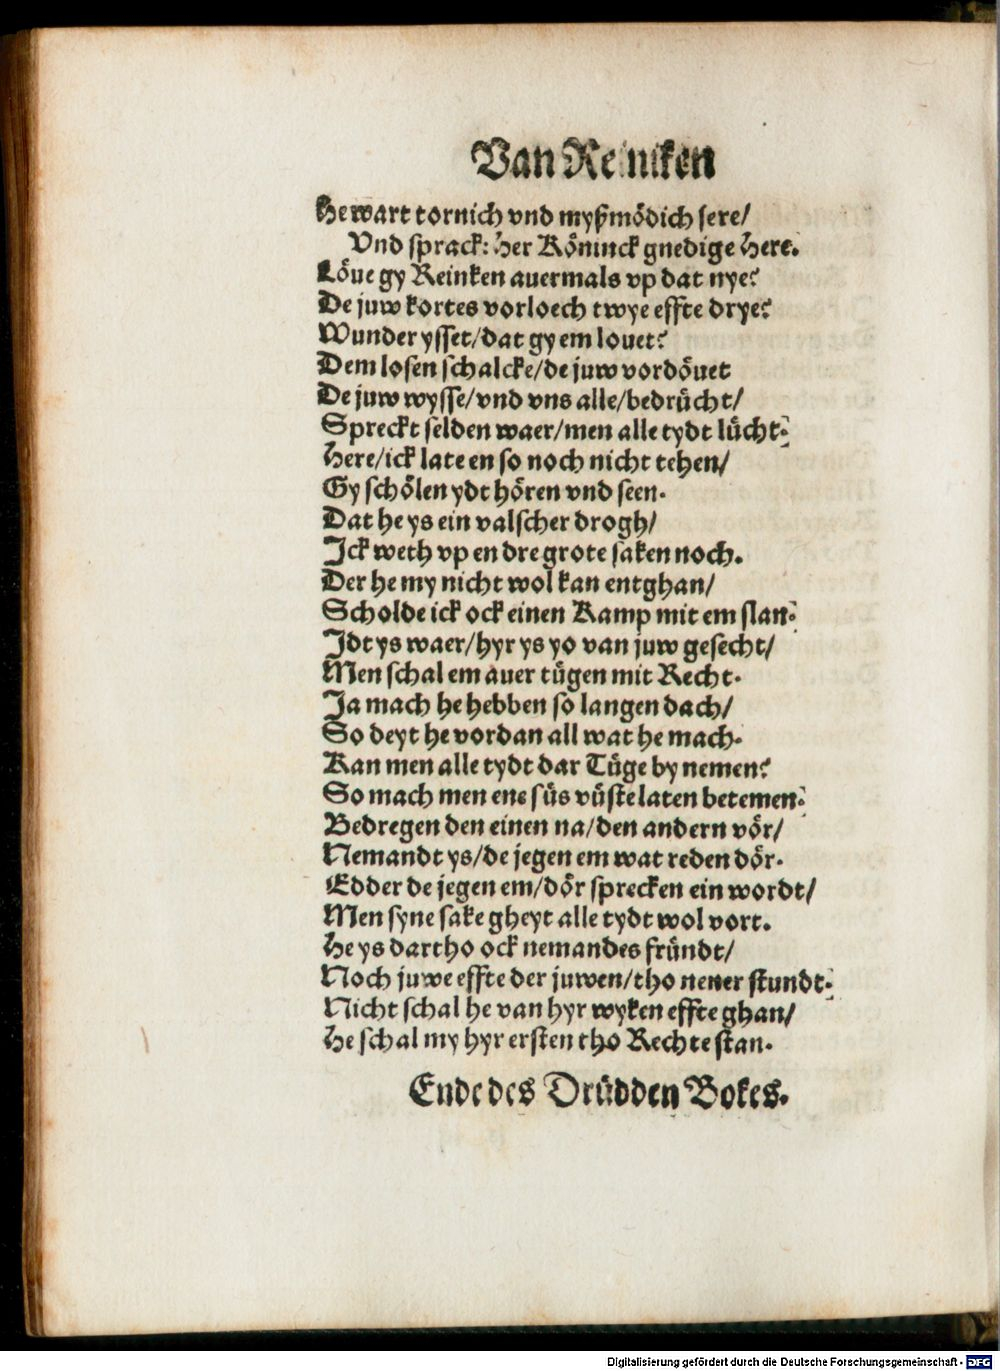 Van Reinken
He wart tornich vnd myßmödich sere/
Vnd sprack: Her Köninck gnedige Here.
Löue gy Reinken auermals vp dat nye?
De juw kortes vorloech twye effte drye?
Wunder ysset/dat gy em louet?
Dem losen schalcke/de juw vordöuet
De juw wysse/vnd vns alle/bedrücht/
Spreckt selden waer/men alle tydt lücht.
Here/ick late en so noch nicht tehen/
Gy schölen ydt hören vnd seen.
Dat he ys ein valscher drogh/
Ick weth vp en dre grote saken noch.
Der he my nicht wol kan entghan/
Scholde ick ock einen Kamp mit em slan.
Idt ys waer/hyr ys yo van juw gesecht/
Men schal em auer tügen mit Recht.
Ja mach he hebben so langen dach/
So deyt he vordan all wat he mach.
Kan men alle tydt dar Tüge by nemen?
So mach men ene süs vüste laten betemen.
Bedregen den einen na/den andern vör/
Nemandt ys/de jegen em wat reden dör.
Edder de jegen em/dör sprecken ein wordt/
Men syne sake gheyt alle tydt wol vort.
He ys dartho ock nemandes fründt/
Noch juwe effte der juwen/tho nener stundt.
Nicht schal he van hyr wyken effte ghan/
He schal my hyr ersten tho Rechte stan.
Ende des Drüdden Bokes.
Digitalisierung gefördert durch die Deutsche Forschungsgemeinschaft - DFG